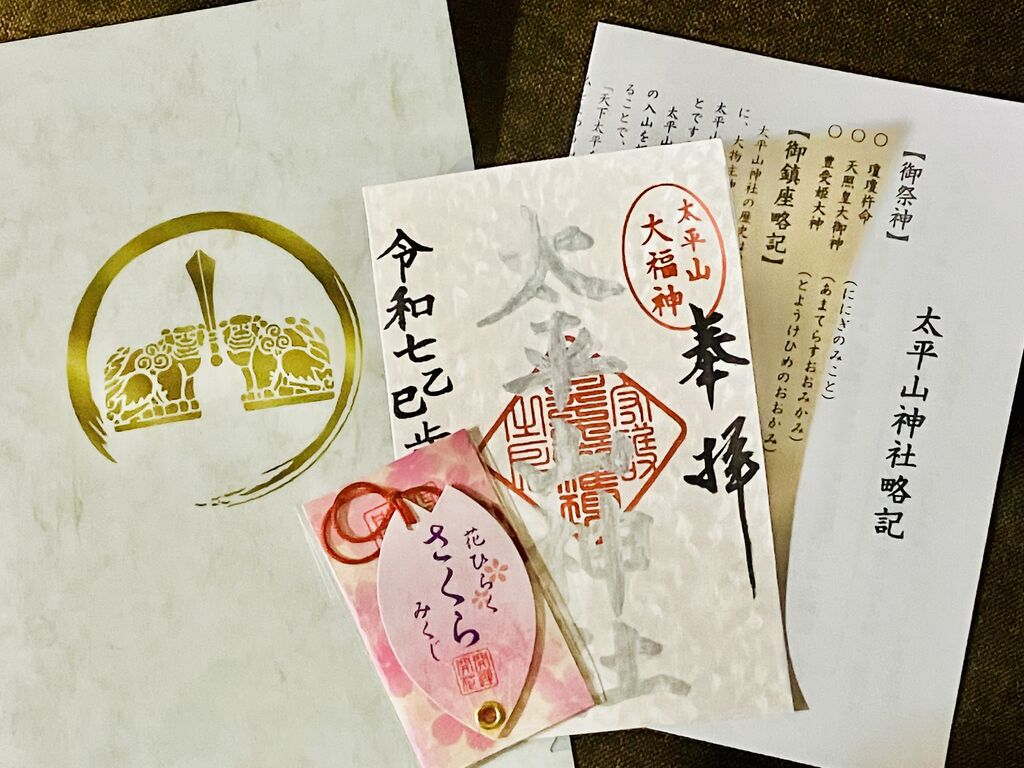 太平山神社略記
【御祭神】
○ 瓊瓊杵命 (ににぎのみこと)
○ 天照皇大御神 (あまてらすおおみかみ)
○ 豊受姫大神 (とようけひめのおおかみ)
【御鎮座略記】
太平山神社の歴史は
に、大物主神
太平山
とです
太平山
の入山を
ることで、
「天下太平
太平山
大福神
奉拝
太平山神社
令和七乙巳歩
花ひらく
さくら
みくじ
開運
開花